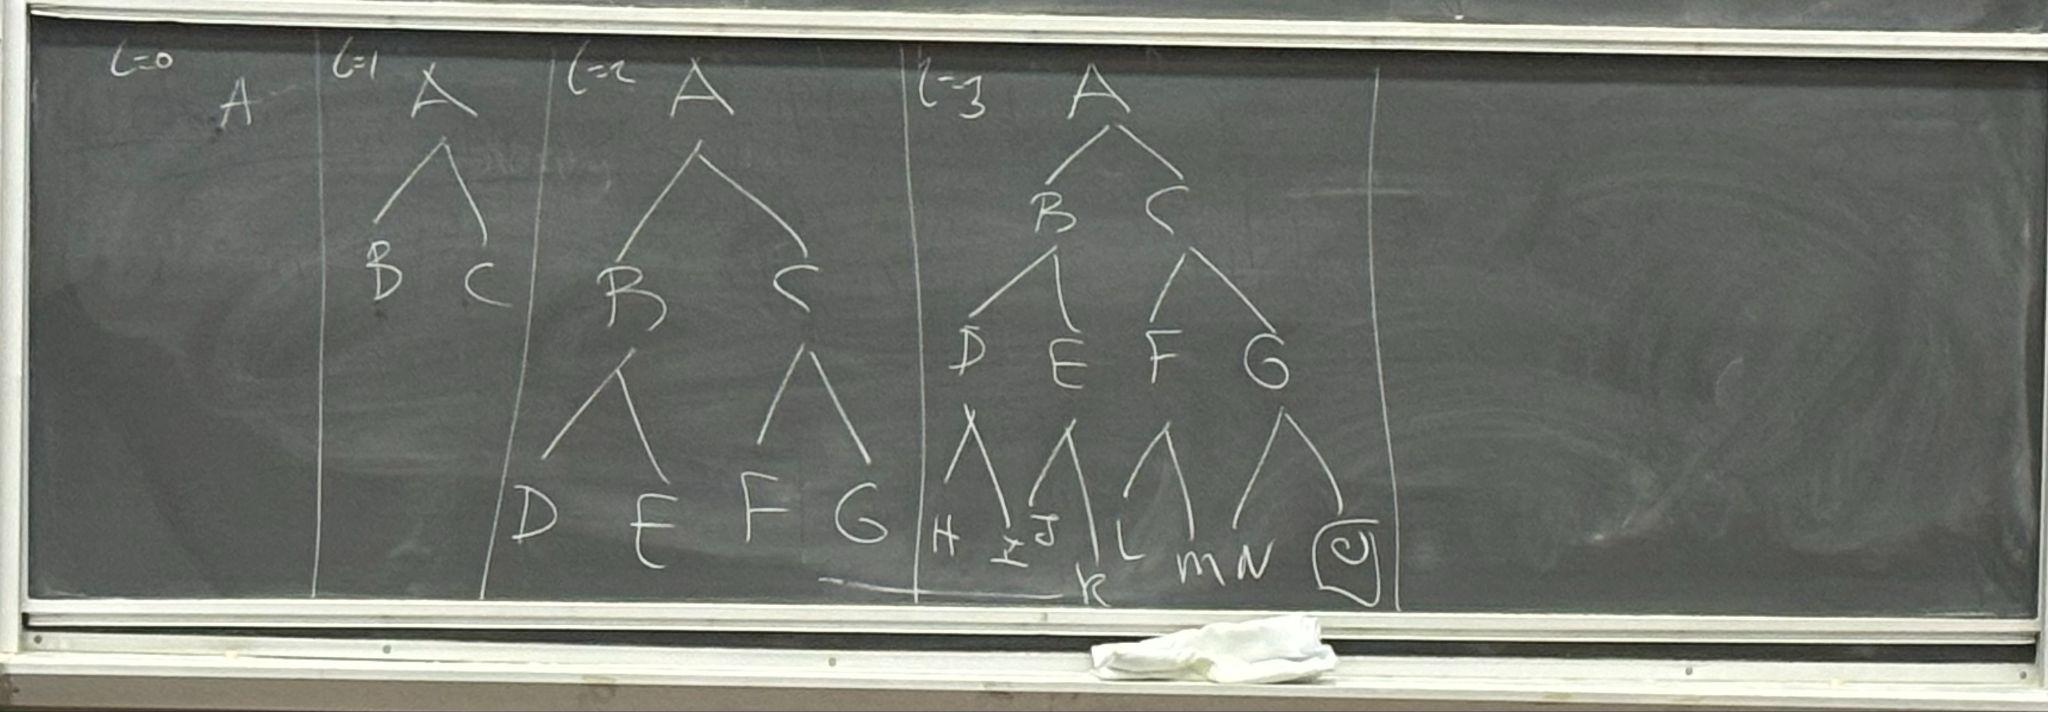 l=0
A
l=1
A
B C
l=2
A
B C
D E F G
l=3
A
B C
D E F G
H I J K L M N